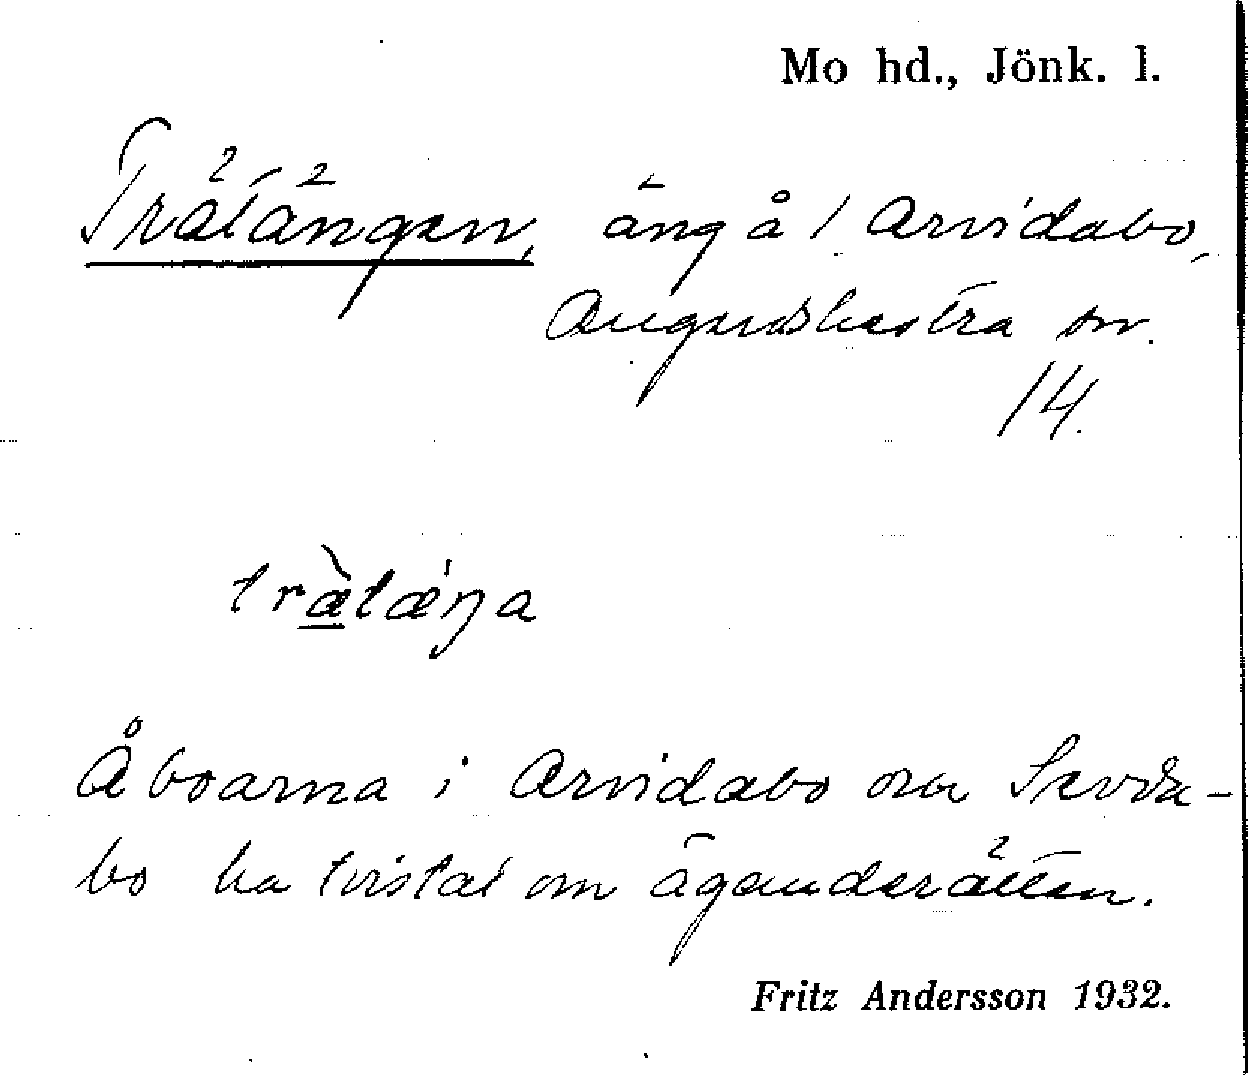 Mo hd., Jönk. l.
Trätängen, äng å 1 Arvidabo,
Angerdshestra sn.
14.
træ̀tæŋa
Åboarna i Arvidabo och
bo ha tvistat om äganderätten.
Fritz Andersson 1932.